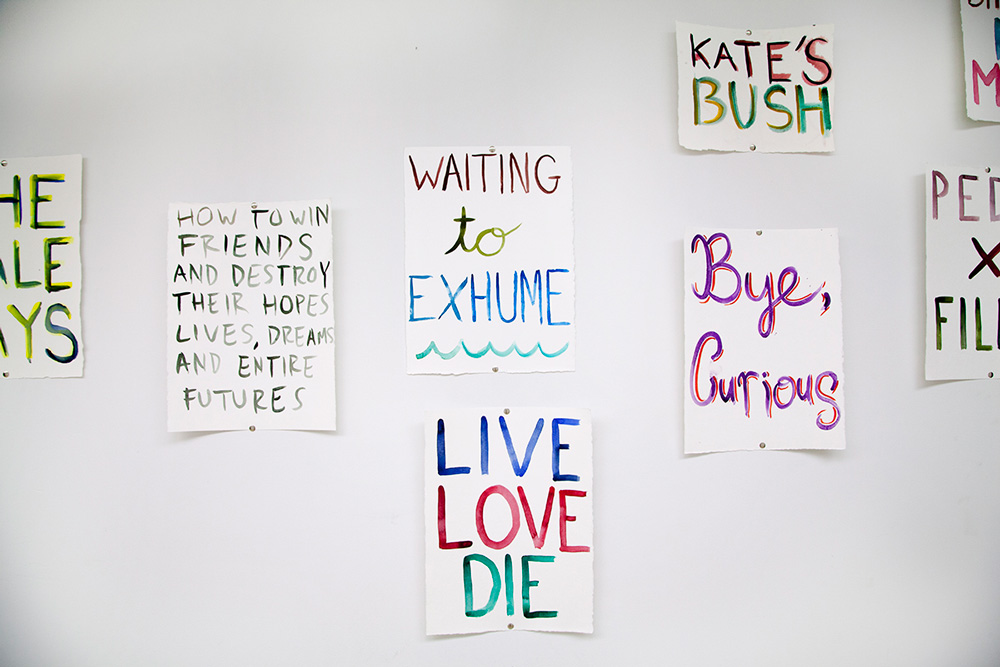 HE
ALE
AYS
HOW TO WIN
FRIENDS
AND DESTROY
THEIR HOPES
LIVES, DREAMS
AND ENTIRE
FUTURES
WAITING
to
EXHUME
LIVE
LOVE
DIE
KATE'S
BUSH
Bye,
Curious
M
PED
X
FILE